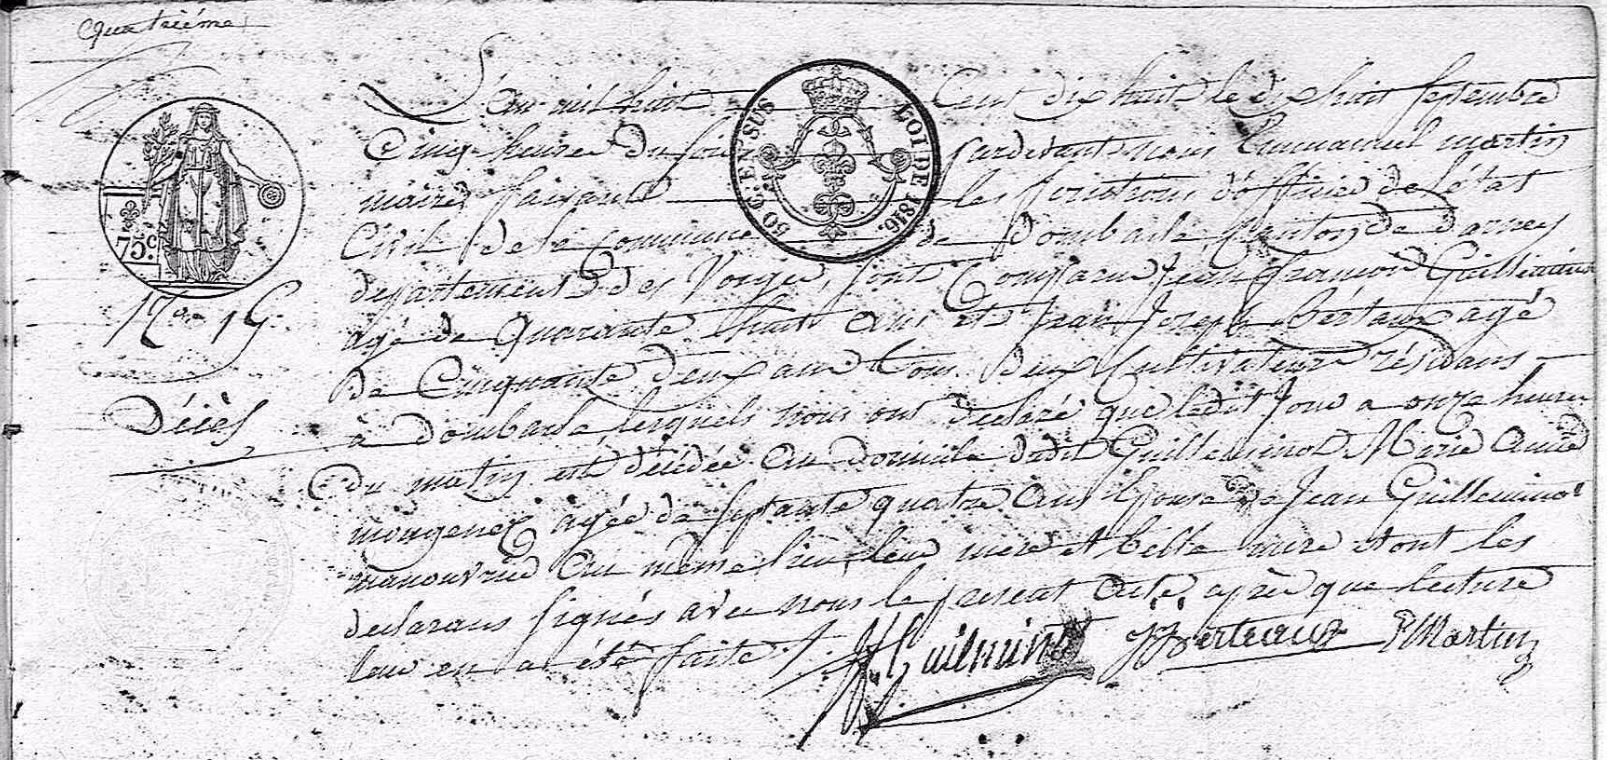 quatriéme
L'an mil huit Cent dix huit le dix huit septembre
Cinq heures du soir pardevant nous Emmanuel martin
maire faisant les fonctions d'officier de l'état
Civil de la commune de Dombasle Canton de darney
departement des Vosges, sont Comparu Jean françois Guilleminot
agé de quarante huit ans et Jean Joseph bertaux agé
de Cinquante deux ans tous deux Cultivateurs résidans
à dombasle, lesquels nous ont declaré que ledit Jour a onze heures
du matin est décédée au domicile dudit Guilleminot Marie Anne
mougenez agée de septante quatre ans Epouse de Jean Guilleminot
manouvrier au même lieu, leur mere et belle mere et ont les
declarans signés avec nous le present acte après que lecture
leur en a été faite ./.
JF Guilminot JJBerteaux EMartin
75.c
50 C. EN SUS
LOI DE 1816.
N.o 19
Décès